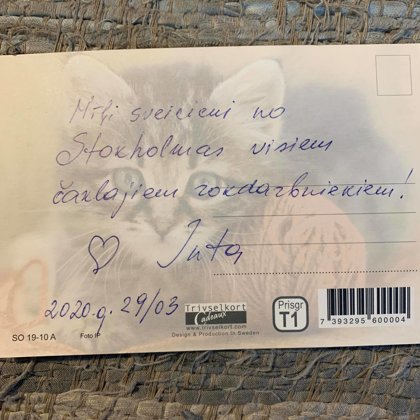 Mīļi sveicieni no
Stokholmas visiem
čaklajiem rokdarbniekiem!
♡ Inta
2020.g. 29/03
Trivselkort
Cadeaux
www.trivselkort.com
Design & Production in Sweden
Prisgr
T1
SO 19-10 A
Foto IF
7 393295 600004